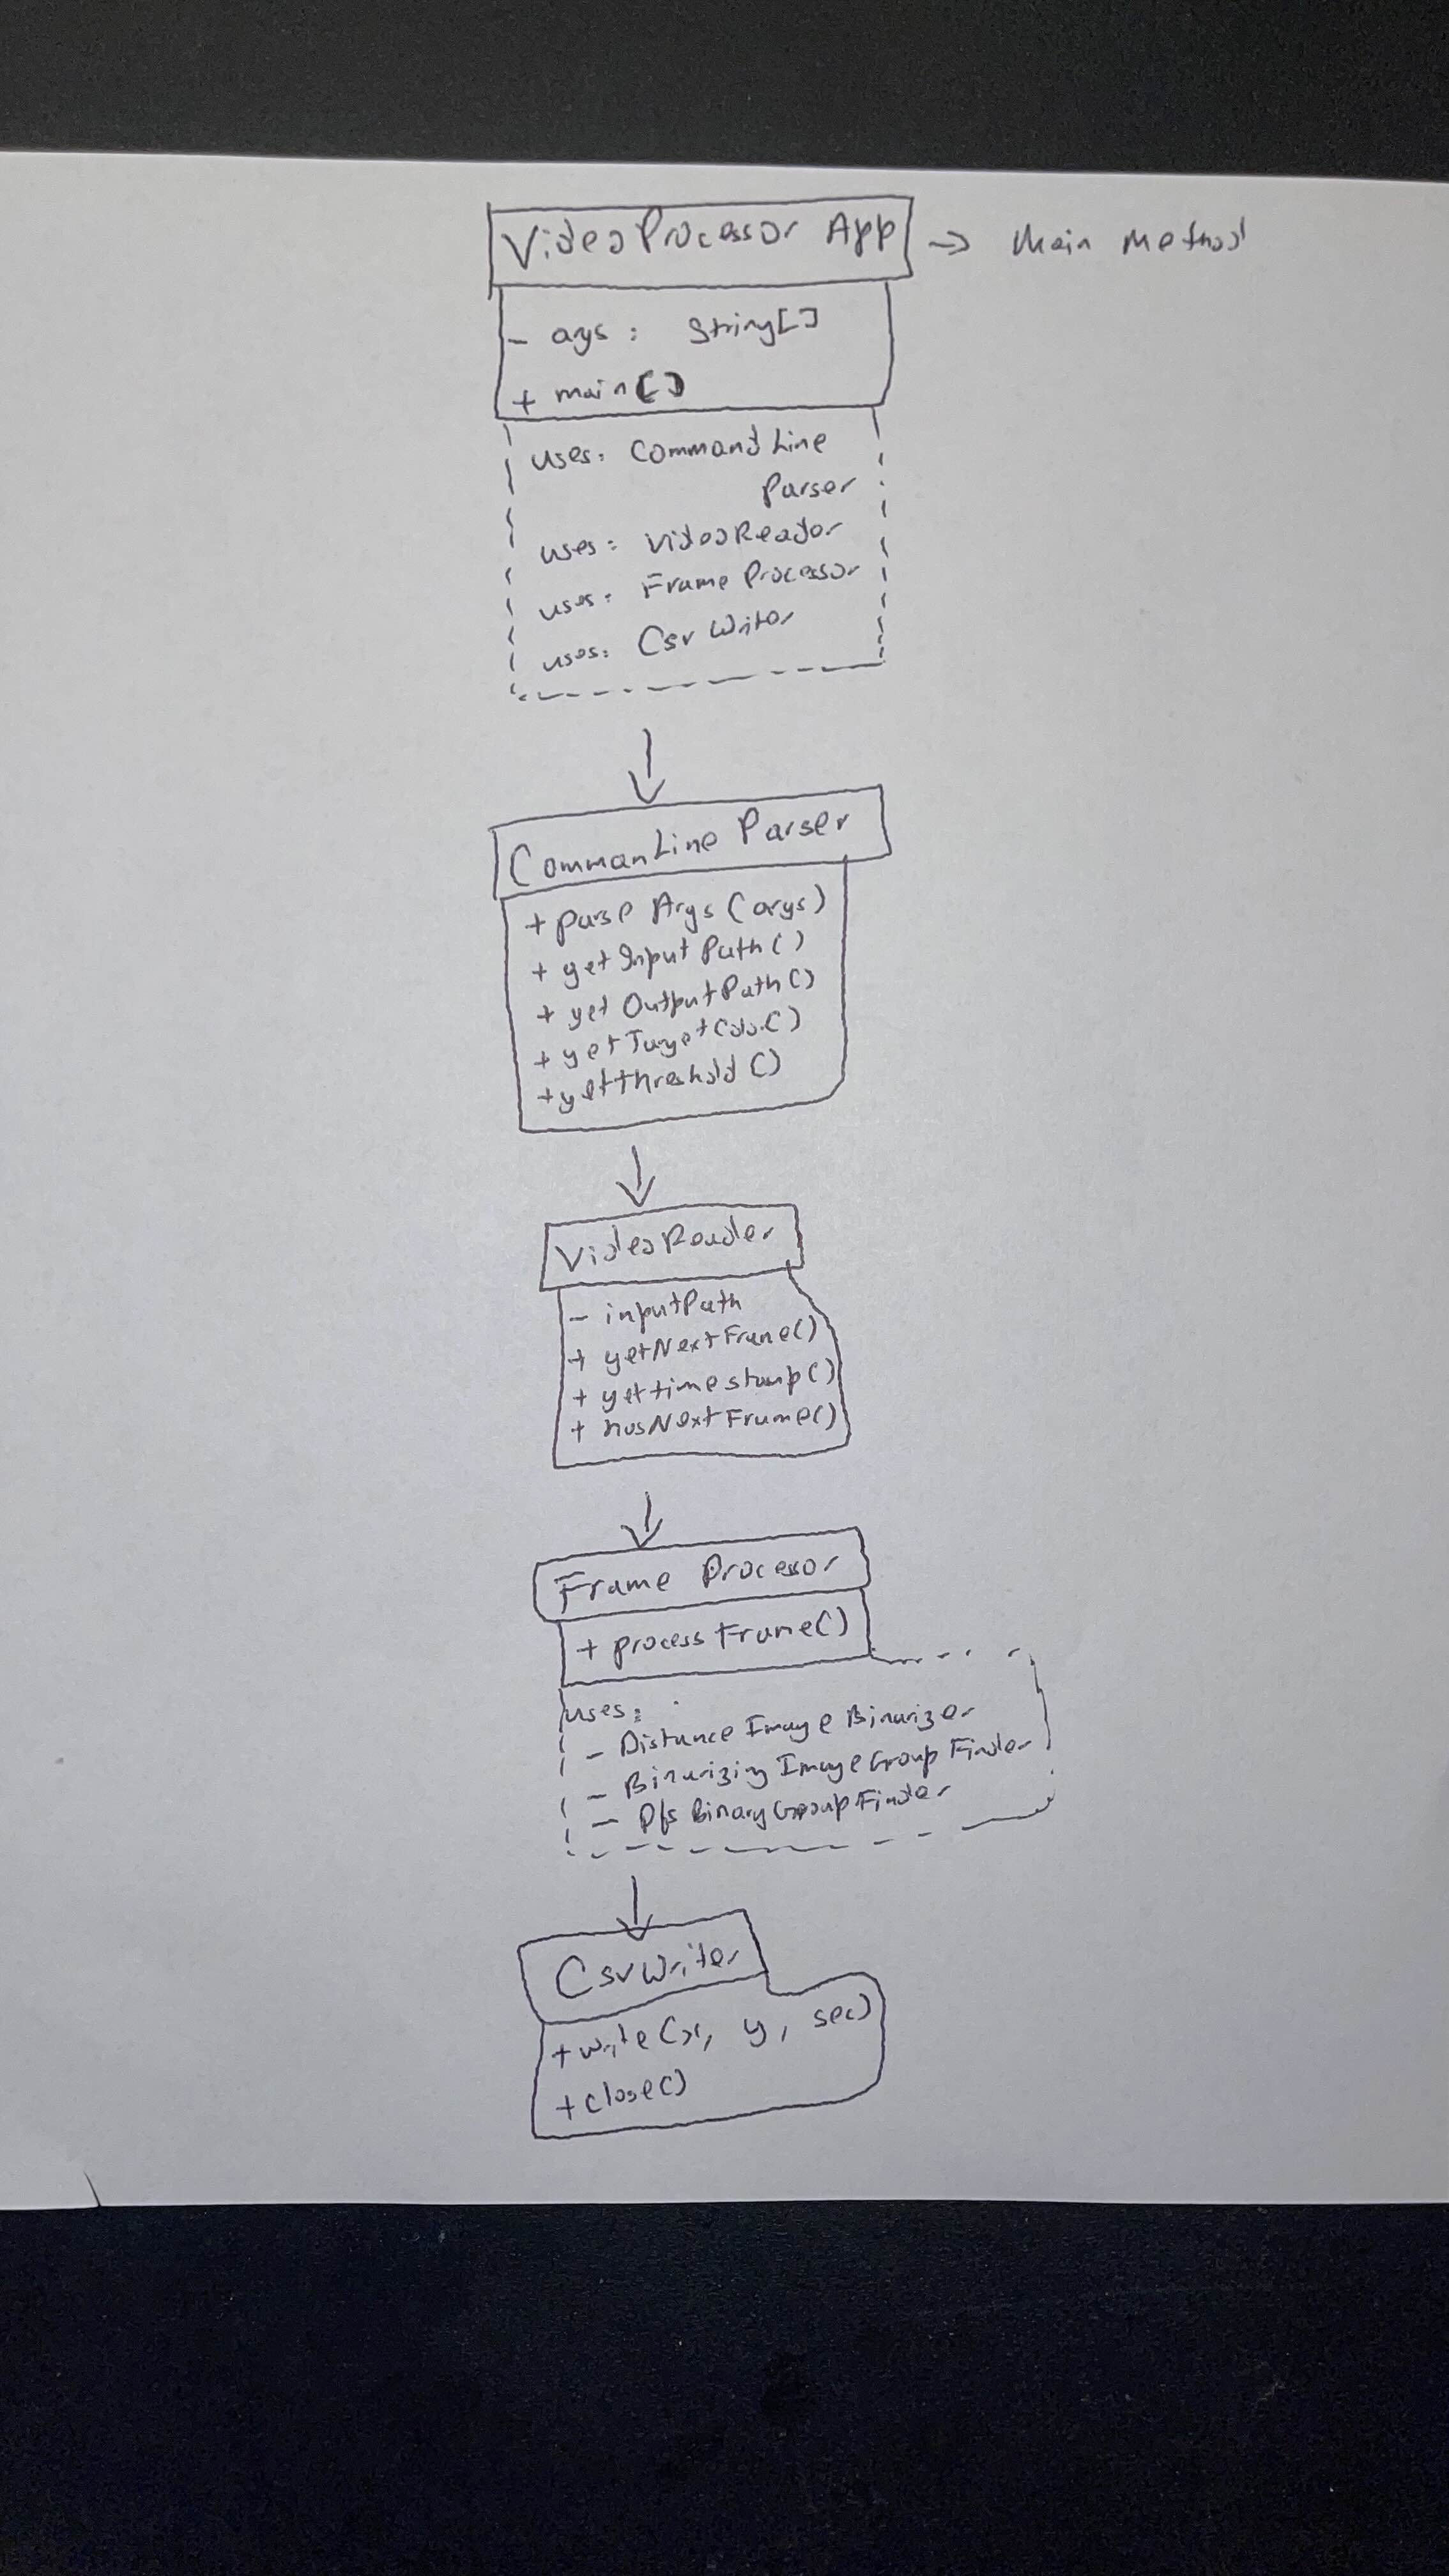 VideoProcessor App → Main Method
- args : String[]
+ main[]
uses: CommandLine
Parser
uses: VideoReader
uses: Frame Processor
uses: Csv Writer
CommanLine Parser
+ parse Args (args)
+ getInput Path()
+ get OutputPath()
+ getTargetColor()
+ getthreshold()
VideoReader
- inputPath
+ getNextFrame()
+ gettimestamp()
+ hasNextFrame()
Frame Processor
+ process Frame()
uses:
- Distance Image Binarizer
- Binarizing ImageGroup Finder
- Dfs BinaryGroupFinder
CsvWriter
+ write(x, y, sec)
+ close()